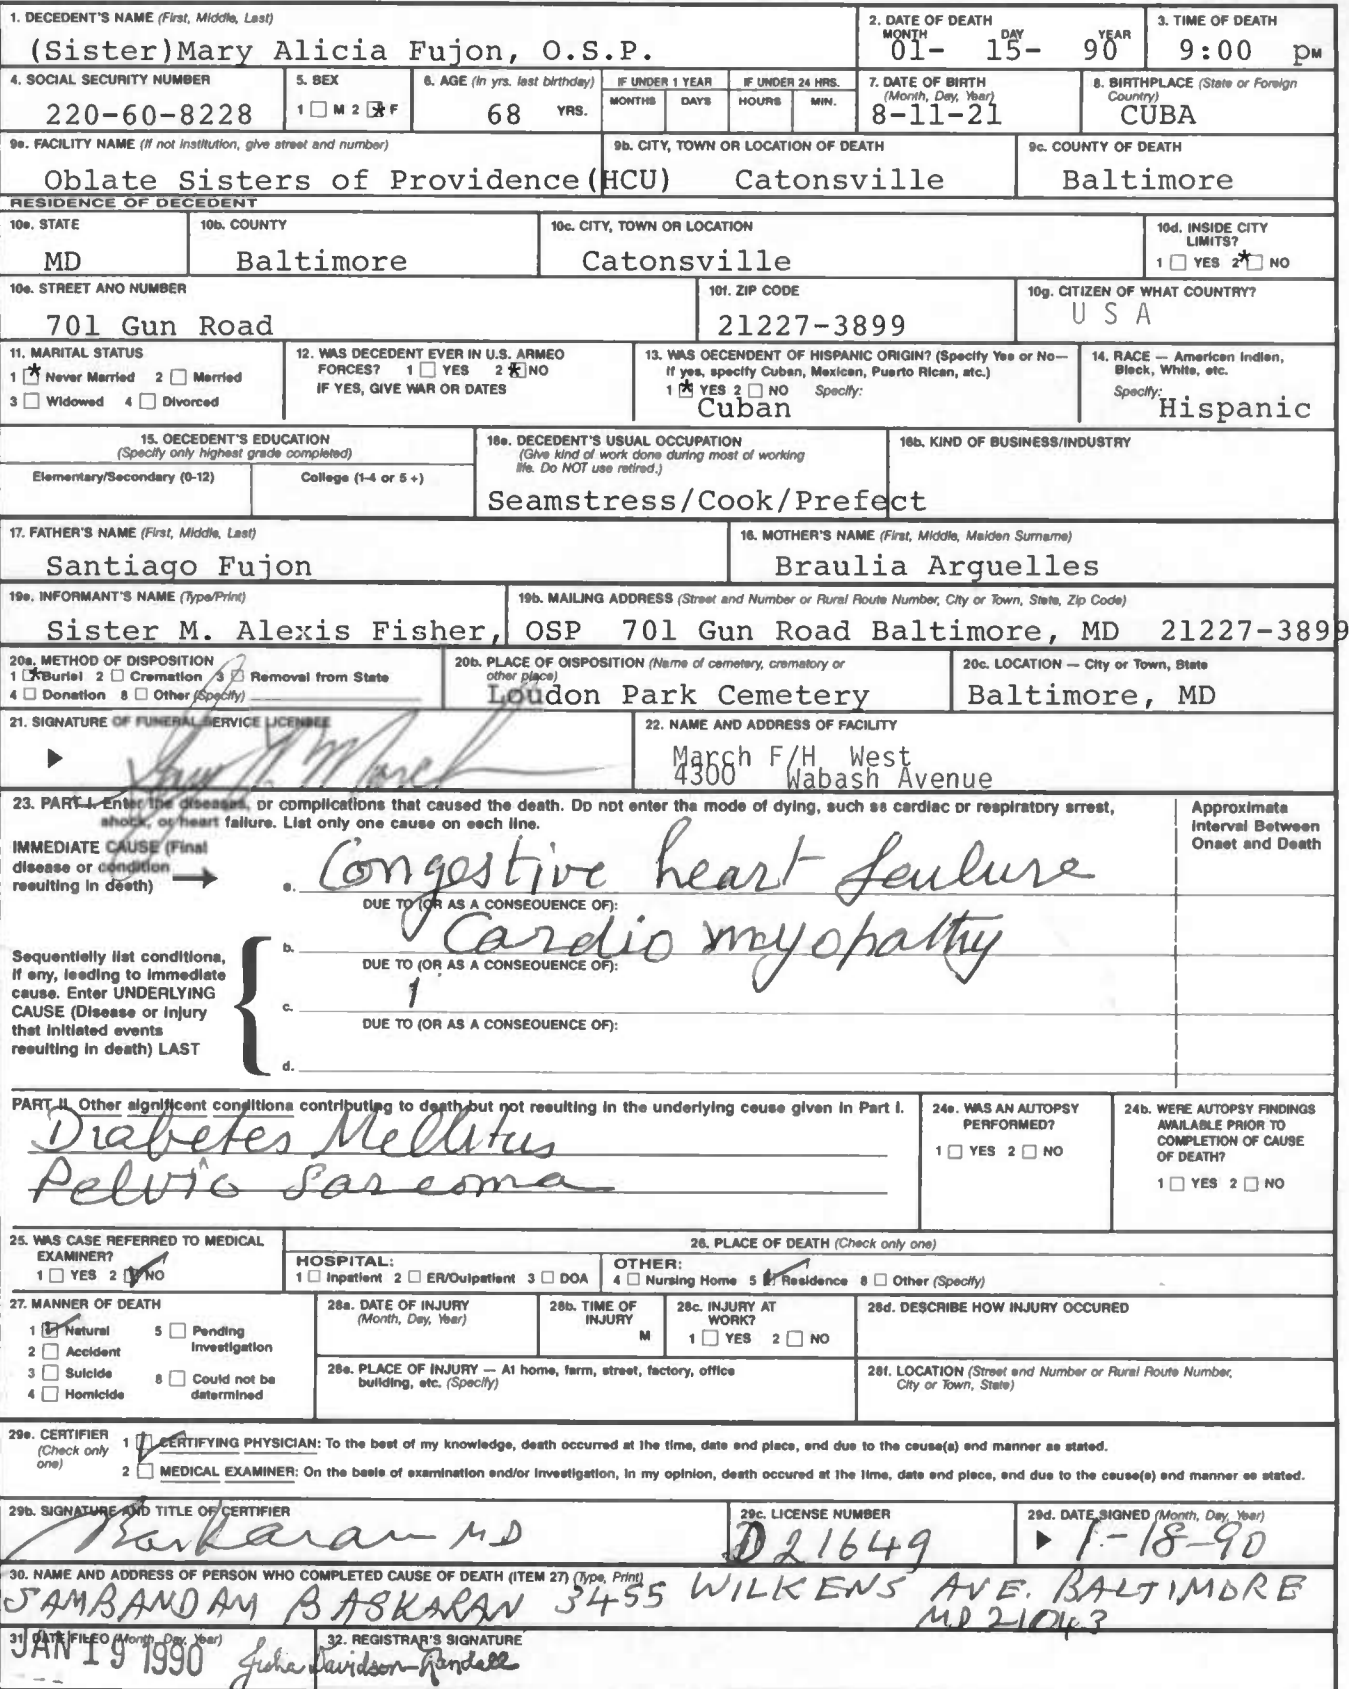 1. DECEDENT'S NAME (First, Middle, Last)
(Sister)Mary Alicia Fujon, O.S.P.
2. DATE OF DEATH
MONTH DAY YEAR
01- 15- 90
3. TIME OF DEATH
9:00 pM
4. SOCIAL SECURITY NUMBER
220-60-8228
5. SEX
1 ☐ M 2 ☒ F
6. AGE (In yrs. last birthday)
68 YRS.
IF UNDER 1 YEAR
MONTHS DAYS
IF UNDER 24 HRS.
HOURS MIN.
7. DATE OF BIRTH
(Month, Day, Year)
8-11-21
8. BIRTHPLACE (State or Foreign
Country)
CUBA
9a. FACILITY NAME (If not institution, give street and number)
Oblate Sisters of Providence(HCU)
9b. CITY, TOWN OR LOCATION OF DEATH
Catonsville
9c. COUNTY OF DEATH
Baltimore
RESIDENCE OF DECEDENT
10a. STATE
MD
10b. COUNTY
Baltimore
10c. CITY, TOWN OR LOCATION
Catonsville
10d. INSIDE CITY
LIMITS?
1 ☐ YES 2 ☒ NO
10e. STREET AND NUMBER
701 Gun Road
10f. ZIP CODE
21227-3899
10g. CITIZEN OF WHAT COUNTRY?
U S A
11. MARITAL STATUS
1 ☒ Never Married 2 ☐ Married
3 ☐ Widowed 4 ☐ Divorced
12. WAS DECEDENT EVER IN U.S. ARMED
FORCES? 1 ☐ YES 2 ☒ NO
IF YES, GIVE WAR OR DATES
13. WAS DECENDENT OF HISPANIC ORIGIN? (Specify Yes or No—
If yes, specify Cuban, Mexican, Puerto Rican, etc.)
1 ☒ YES 2 ☐ NO Specify:
Cuban
14. RACE — American Indian,
Black, White, etc.
Specify:
Hispanic
15. DECEDENT'S EDUCATION
(Specify only highest grade completed)
Elementary/Secondary (0-12) College (1-4 or 5+)
16a. DECEDENT'S USUAL OCCUPATION
(Give kind of work done during most of working
life. Do NOT use retired.)
Seamstress/Cook/Prefect
16b. KIND OF BUSINESS/INDUSTRY
17. FATHER'S NAME (First, Middle, Last)
Santiago Fujon
18. MOTHER'S NAME (First, Middle, Maiden Surname)
Braulia Arguelles
19a. INFORMANT'S NAME (Type/Print)
Sister M. Alexis Fisher, OSP
19b. MAILING ADDRESS (Street and Number or Rural Route Number, City or Town, State, Zip Code)
701 Gun Road Baltimore, MD 21227-3899
20a. METHOD OF DISPOSITION
1 ☒ Burial 2 ☐ Cremation 3 ☐ Removal from State
4 ☐ Donation 8 ☐ Other (Specify)
20b. PLACE OF DISPOSITION (Name of cemetery, crematory or
other place)
Loudon Park Cemetery
20c. LOCATION — City or Town, State
Baltimore, MD
21. SIGNATURE OF FUNERAL SERVICE LICENSEE
22. NAME AND ADDRESS OF FACILITY
March F/H West
4300 Wabash Avenue
23. PART I. Enter the diseases, or complications that caused the death. Do not enter the mode of dying, such as cardiac or respiratory arrest,
shock, or heart failure. List only one cause on each line.
Approximate
Interval Between
Onset and Death
IMMEDIATE CAUSE (Final
disease or condition
resulting in death)
a. Congestive heart feulure
DUE TO (OR AS A CONSEQUENCE OF):
b. Cardiomyopathy
DUE TO (OR AS A CONSEQUENCE OF):
c.
DUE TO (OR AS A CONSEQUENCE OF):
d.
Sequentially list conditions,
if any, leading to immediate
cause. Enter UNDERLYING
CAUSE (Disease or injury
that initiated events
resulting in death) LAST
PART II. Other significant conditions contributing to death but not resulting in the underlying cause given in Part I.
Diabetes Mellitus
Pelvic Sarcoma
24a. WAS AN AUTOPSY
PERFORMED?
1 ☐ YES 2 ☐ NO
24b. WERE AUTOPSY FINDINGS
AVAILABLE PRIOR TO
COMPLETION OF CAUSE
OF DEATH?
1 ☐ YES 2 ☐ NO
25. WAS CASE REFERRED TO MEDICAL
EXAMINER?
1 ☐ YES 2 ☑ NO
26. PLACE OF DEATH (Check only one)
HOSPITAL:
1 ☐ Inpatient 2 ☐ ER/Outpatient 3 ☐ DOA
OTHER:
4 ☐ Nursing Home 5 ☑ Residence 8 ☐ Other (Specify)
27. MANNER OF DEATH
1 ☑ Natural 5 ☐ Pending
Investigation
2 ☐ Accident
3 ☐ Suicide 8 ☐ Could not be
determined
4 ☐ Homicide
28a. DATE OF INJURY
(Month, Day, Year)
28b. TIME OF
INJURY
M
28c. INJURY AT
WORK?
1 ☐ YES 2 ☐ NO
28d. DESCRIBE HOW INJURY OCCURED
28e. PLACE OF INJURY — At home, farm, street, factory, office
building, etc. (Specify)
28f. LOCATION (Street and Number or Rural Route Number,
City or Town, State)
29a. CERTIFIER
(Check only
one)
1 ☑ CERTIFYING PHYSICIAN: To the best of my knowledge, death occurred at the time, date and place, and due to the cause(s) and manner as stated.
2 ☐ MEDICAL EXAMINER: On the basis of examination and/or investigation, in my opinion, death occured at the time, date and place, and due to the cause(s) and manner as stated.
29b. SIGNATURE AND TITLE OF CERTIFIER
Baskaran MD
29c. LICENSE NUMBER
D21649
29d. DATE SIGNED (Month, Day, Year)
1-18-90
30. NAME AND ADDRESS OF PERSON WHO COMPLETED CAUSE OF DEATH (ITEM 27) (Type, Print)
SAMBANDAM BASKARAN 3455 WILKENS AVE. BALTIMORE
MD 21043
31. DATE FILED (Month, Day, Year)
JAN 19 1990
32. REGISTRAR'S SIGNATURE
Julia Davidson-Randall